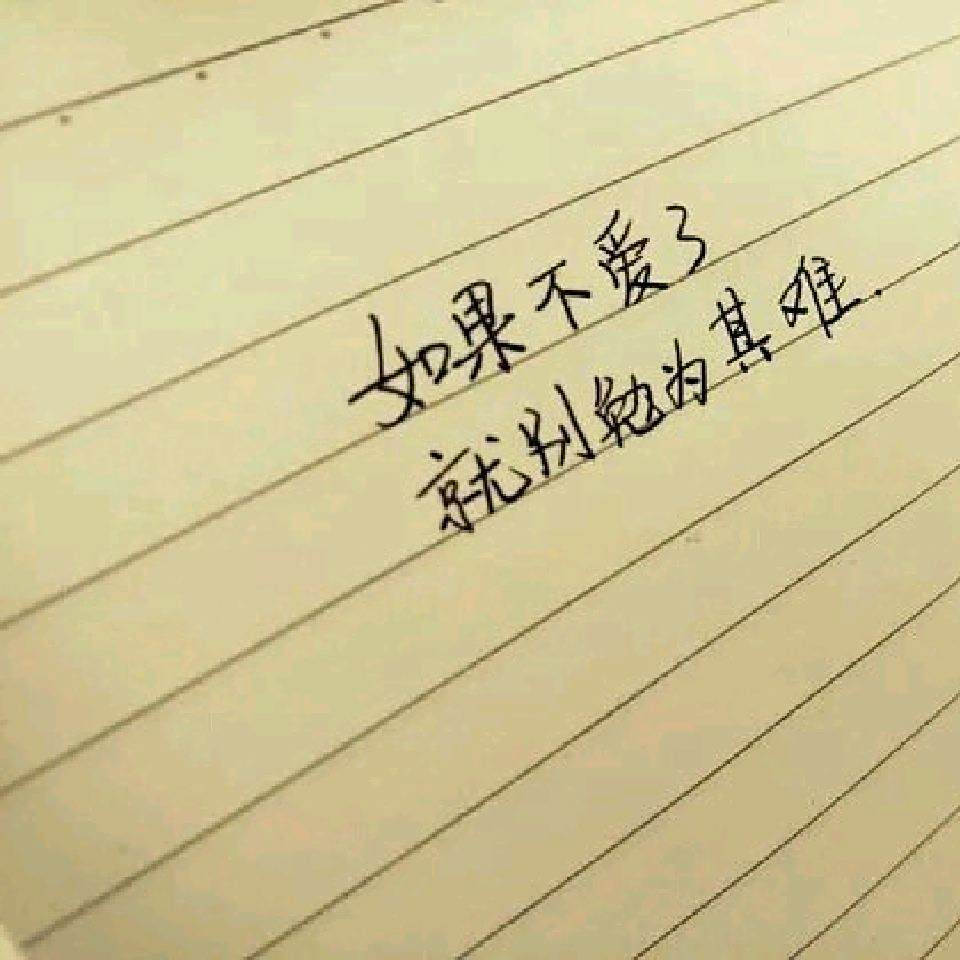 如果不爱了
就别勉为其难.